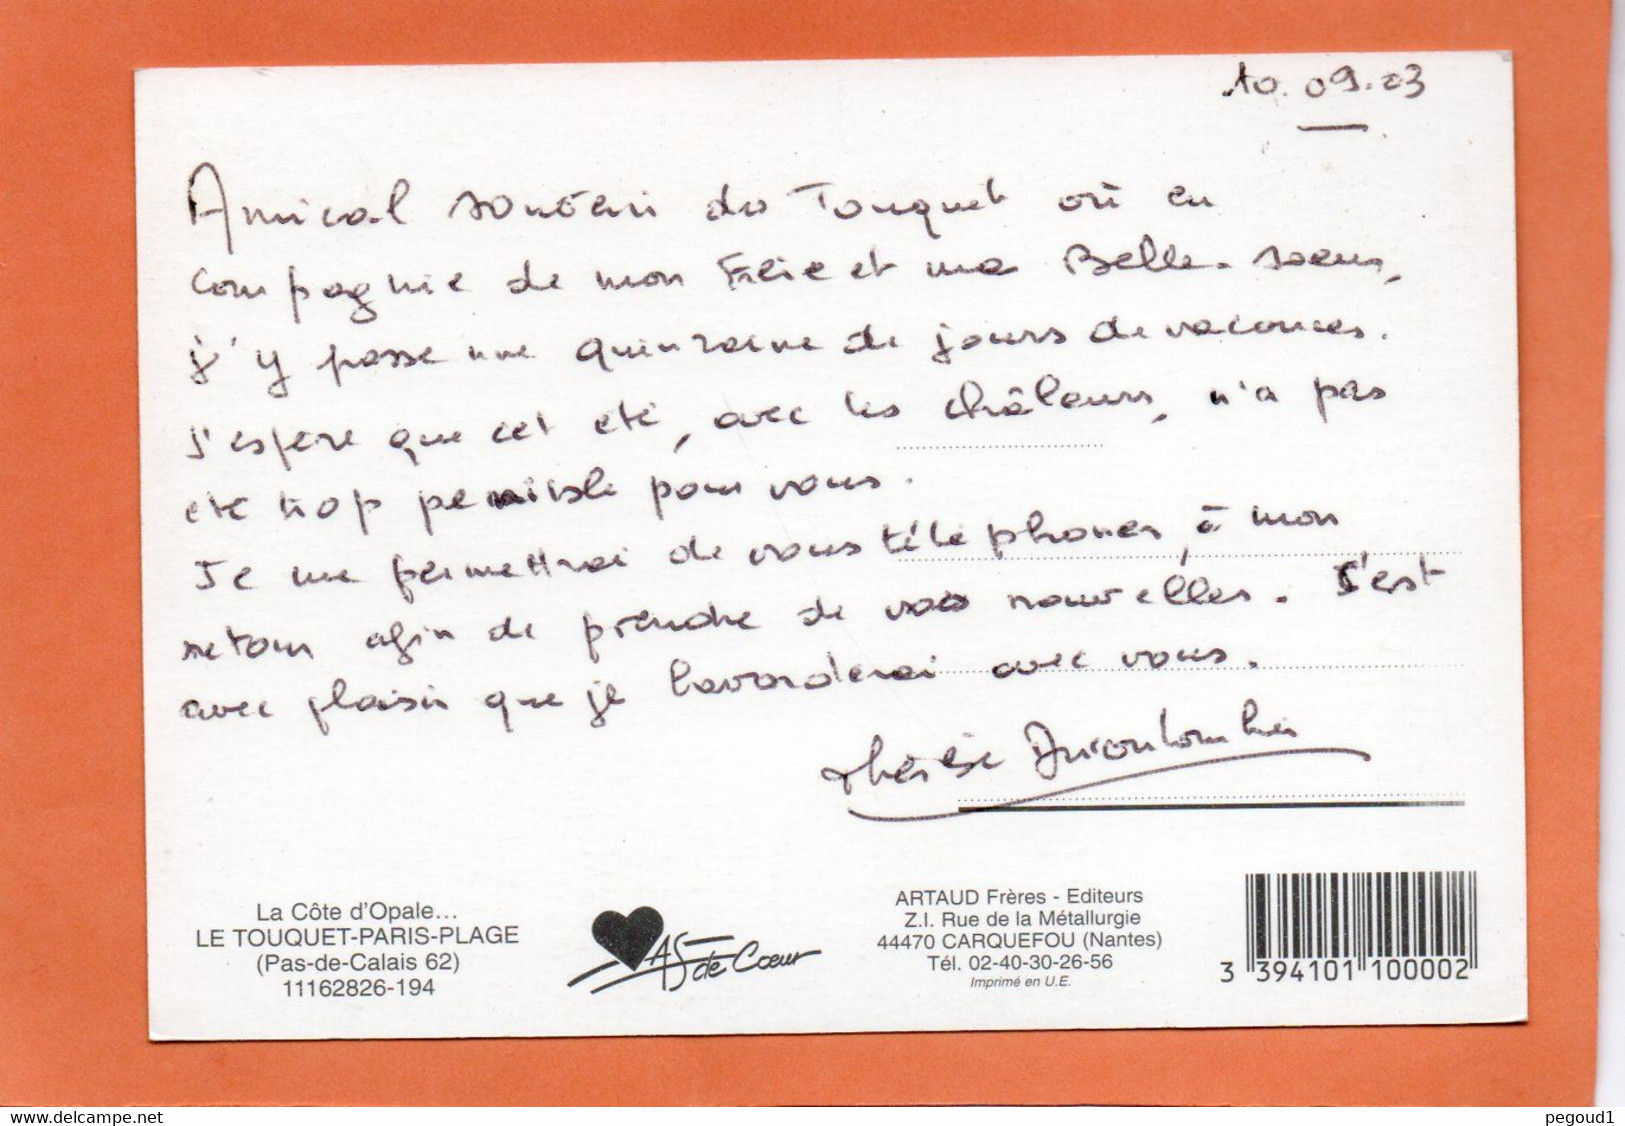 10.09.03
Amical souvenir du Touquet où en
compagnie de mon Frère et ma Belle-soeur,
j'y passe une quinzaine de jours de vacances.
J'espère que cet été, avec les châleurs, n'a pas
été trop penible pour vous.
Je me permettrai de vous téléphoner, à mon
retour afin de prendre de vos nouvelles. S'est
avec plaisir que je bavarderai avec vous.
Thérèse
La Côte d'Opale...
LE TOUQUET-PARIS-PLAGE
(Pas-de-Calais 62)
11162826-194
AS de Cœur
ARTAUD Frères - Editeurs
Z.I. Rue de la Métallurgie
44470 CARQUEFOU (Nantes)
Tél. 02-40-30-26-56
Imprimé en U.E.
3 394101 100002
www.delcampe.net
pegoud1